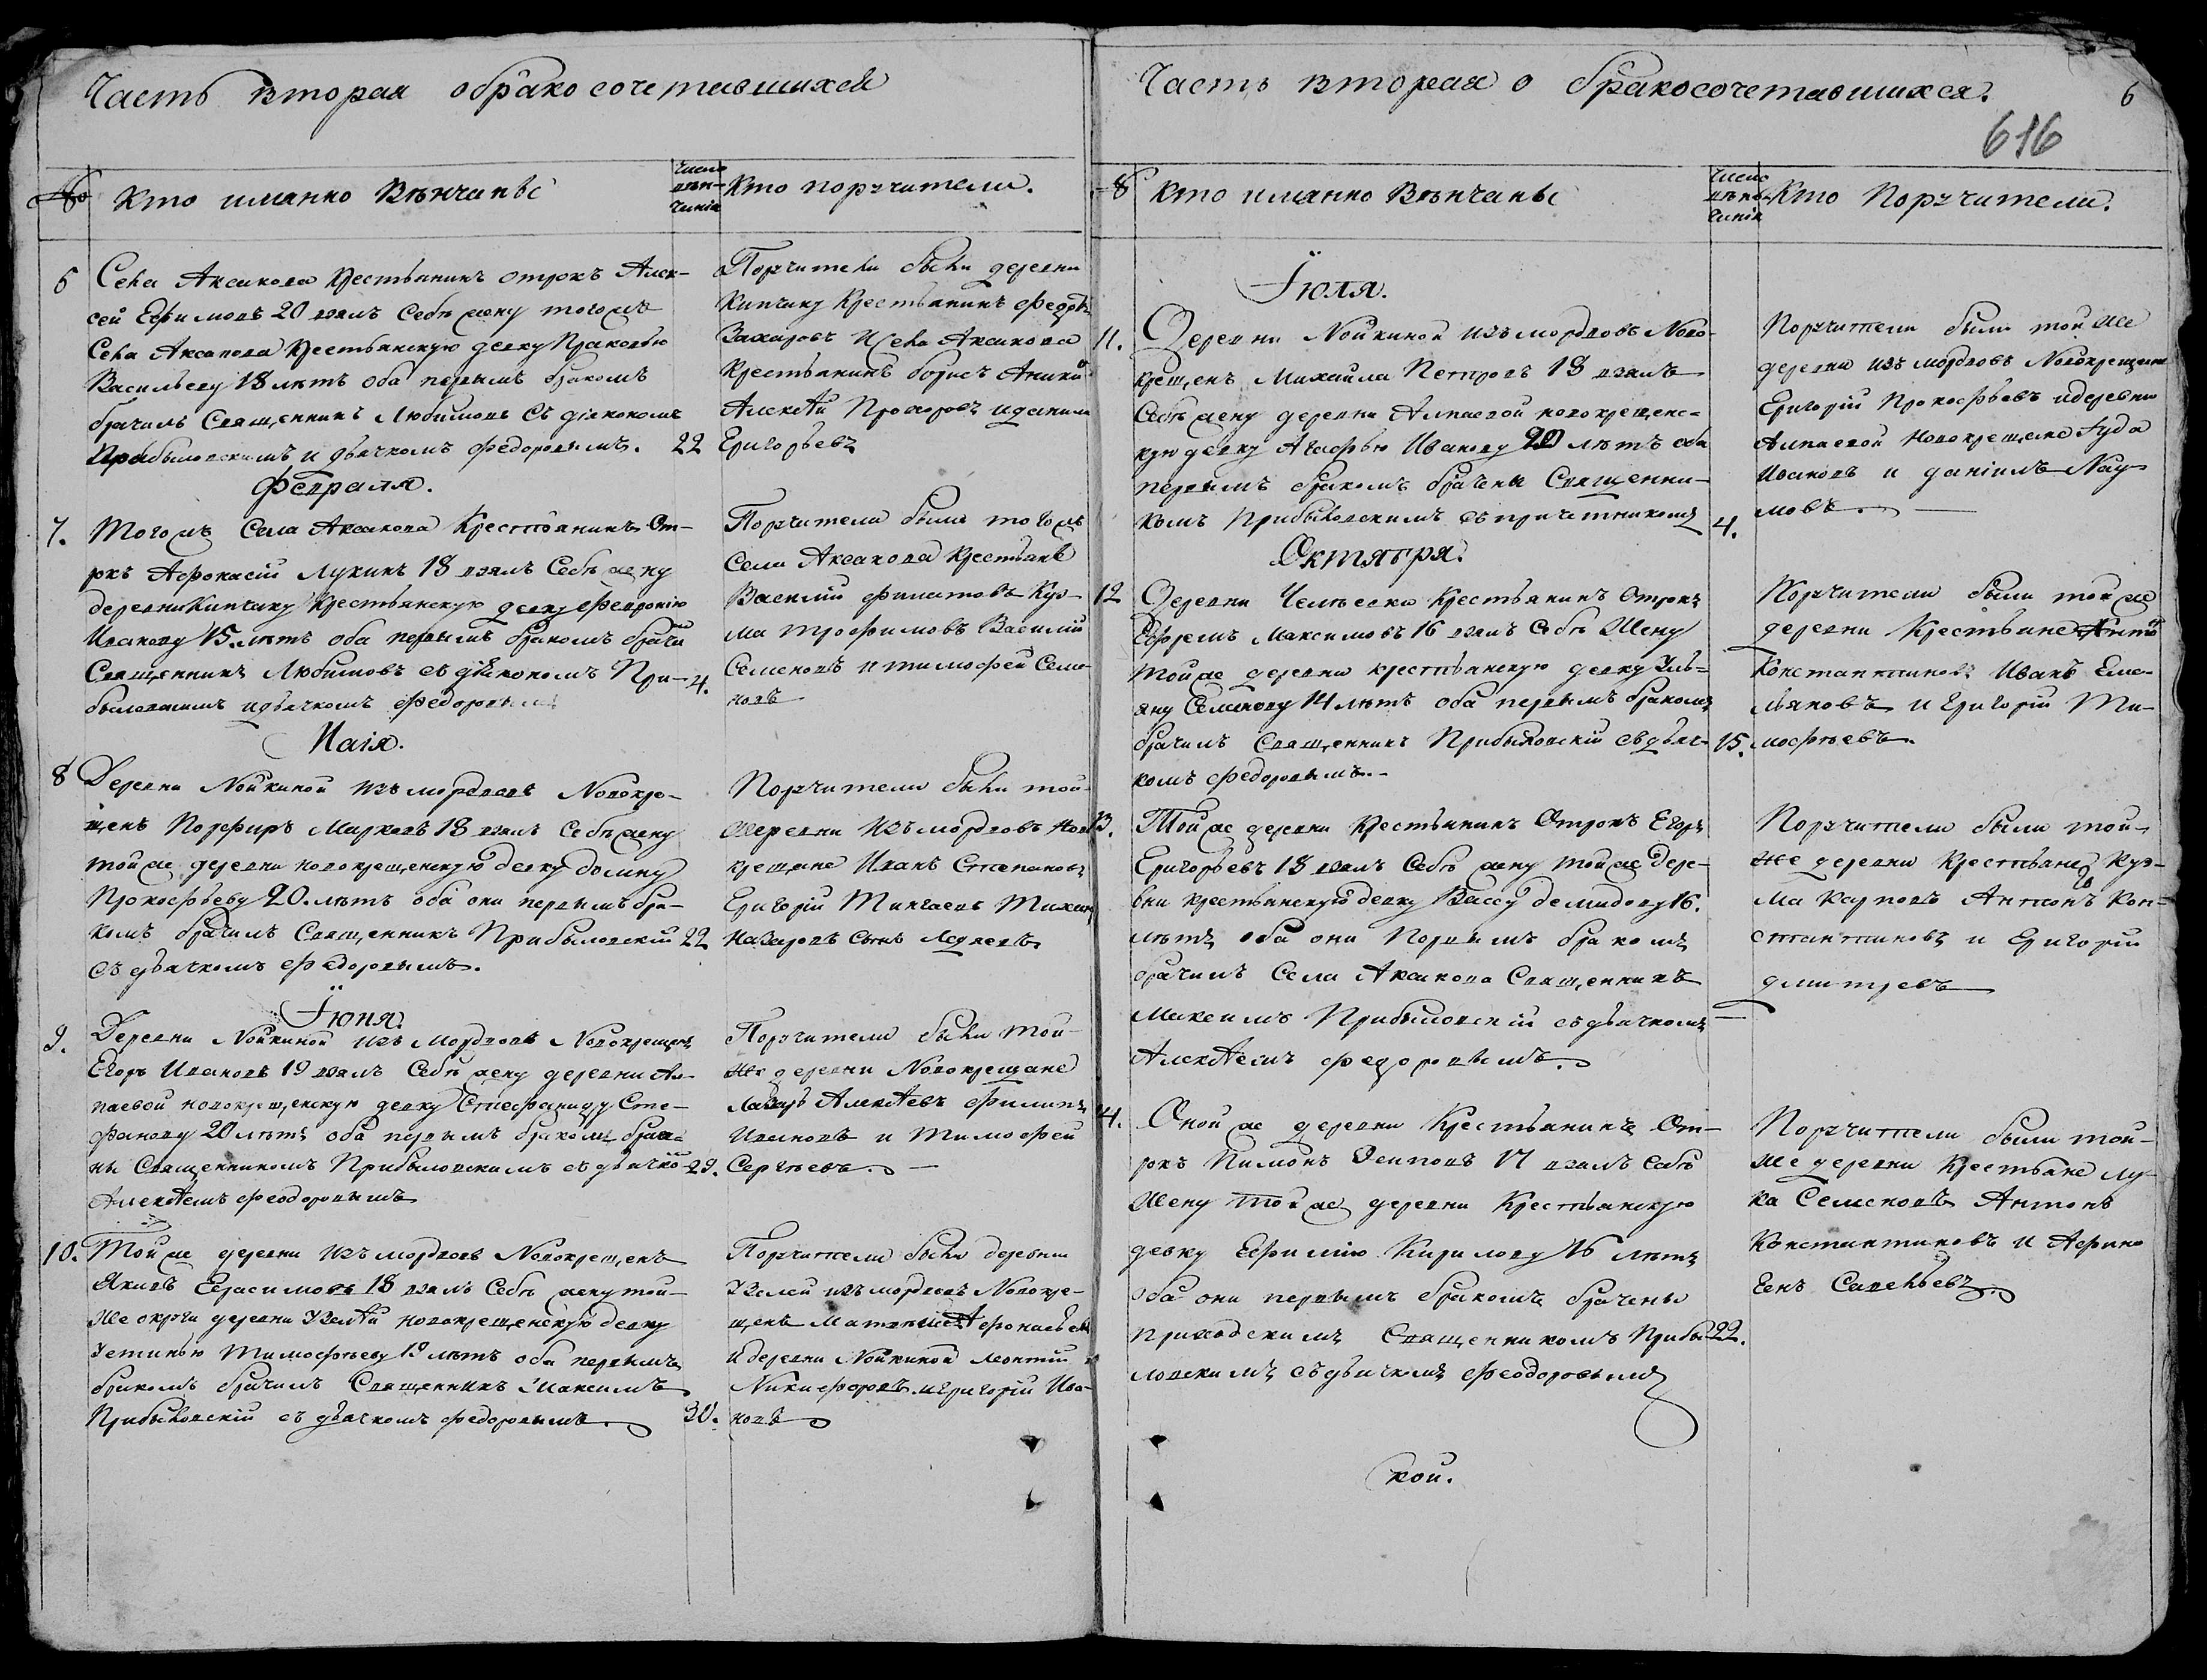 Часть вторая обракосочетавшихся
№
Кто имянно Вѣнчаны
Число вѣн-чанія
Кто поручители.
6 Села Аксакова Крестьянинъ отрокъ Алек-
сей Ефимовъ 20 взялъ себѣ жену тогожъ
Села Аксакова Крестьянскую девку Прасковью
Васильеву 18 лѣтъ оба первымъ бракомъ
брачилъ Священникъ Любимовъ съ діакономъ
Прибыловскимъ и дьячкомъ Федоровымъ. 22
Поручители были деревни
Кипчаку Крестьянинъ Федоръ
Захаровъ и Села Аксакова
Крестьянинъ Борисъ
Алексѣй Прохоровъ и данила
Григорьевъ
Февраля.
7. Тогожъ Села Аксакова Крестьянинъ От-
рокъ Афонасій Лукинъ 18 взялъ Себѣ жену
деревни Кипчаку Крестьянскую девку Февронію
Иванову 15. лѣтъ оба первымъ бракомъ брачи
Священникъ Любимовъ съ діякономъ При- 4.
быловскимъ и дьячкомъ Федоровымъ
Поручители были тогожъ
Села Аксакова Крестьяне
Василій Филатовъ Куз-
ма Трофимовъ Василій
Семеновъ и тимофей Семе
новъ
Маія.
8 Деревни Нойкиной изъ мордвовъ Новокре-
щенъ Порфиръ Марковъ 18 взялъ Себѣ жену
тойже деревни новокрещенскую девку домну
Прокофьеву 20. лѣтъ оба они первымъ бра-
комъ брачилъ Священникъ Прибыловскій 22
съ дьячкомъ Федоровымъ.
Поручители были той-
жеревни Изъ мордвовъ Нов
крещане Иванъ Степановъ
Григорій
Назаровъ сынъ
Іюня.
9. Деревни Нойкиной изъ Мордвовъ Новокрещенъ
Егоръ Ивановъ 19 взялъ Себѣ жену деревни Ал-
паевой новокрещенскую девку Стефаниду Сте-
фанову 20 лѣтъ оба первымъ бракомъ браче-
ны Священникомъ Прибыловскимъ съ дьячко 29.
Алексѣемъ Феодоровымъ
Поручители были той-
же деревни Новокрещане
Лазарь Алексѣевъ Филипъ
Ивановъ и Тимофей
Сергѣевъ.
10. Тойже деревни изъ мордвовъ Новокрещенъ
Яковъ Герасимовъ 18 взялъ Себѣ жену той-
же округи деревни Узелѣй новокрещенскую девку
Устинью Тимофѣеву 19 лѣтъ оба первымъ
бракомъ брачилъ Священникъ Максимъ
Прибыловскій съ дьячкомъ Федоровымъ. 30.
Поручители были деревни
Узелей изъ мордвовъ Новокре-
щенъ Афонасьевъ
и деревни Нойкиной Леонтій
Никифоровъ и Григорій Ива-
новъ
Часть вторая о бракосочетавшихся.
6
616
№
Кто имянно Вѣнчаны
Число вѣн-чанія
Кто Поручители.
Іюля.
11. Деревни Нойкиной изъ мордвовъ Ново-
крещенъ Михаила Петровъ 18 взялъ
Себѣ жену деревни Алпаевой новокрещенс-
кую девку Агафью Иванову 20 лѣтъ оба
первымъ бракомъ брачены Священни-
комъ Прибыловскимъ съ причетникомъ 4.
Поручители были той же
деревни изъ мордвовъ Новокрещены
Григорій Прокофьевъ и деревни
Алпаевой Новокрещене Іуда
Ивановъ и даніилъ Нау-
мовъ
Октября.
12 Деревни Крестьянинъ Отрокъ
Ефремъ Максимовъ 16 взялъ Себѣ Жену
тойже деревни крестьянскую девку Уль-
яну Семенову 14 лѣтъ оба первымъ бракомъ
брачилъ Священникъ Прибыловскій съ дьяч- 15.
комъ Федоровымъ.
Поручители были той же
деревни Крестьяне Антонъ
Константиновъ Иванъ Еме-
льяновъ и Григорій Ти-
мофѣевъ
13. Тойже деревни Крестьянинъ Отрокъ Егоръ
Григорьевъ 18 взялъ Себѣ жену тойже дере-
вни крестьянскую девку Вассу демидову 16.
лѣтъ оба они первымъ бракомъ
брачилъ Села Аксакова Священникъ
Максимъ Прибыловскій съ дьячкомъ
Алексѣемъ Федоровымъ.
Поручители были той-
же деревни Крестьяне Куз-
ма Карповъ Антонъ Кон-
стантиновъ и Григорій
дмитревъ
14. Оной же деревни Крестьянинъ От-
рокъ Пимонъ Осиповъ 17 взялъ Себѣ
Жену той же деревни Крестьянскую
девку Ефимію Кирилову 16 лѣтъ
оба они первымъ бракомъ брачены
приходскимъ Священникомъ Прибы- 22.
ловскимъ съ дьячкомъ Феодоровымъ
Поручители были той-
же деревни Крестьяне Лу-
ка Семеновъ Антонъ
Константиновъ и Афино
генъ Савельевъ
кои.